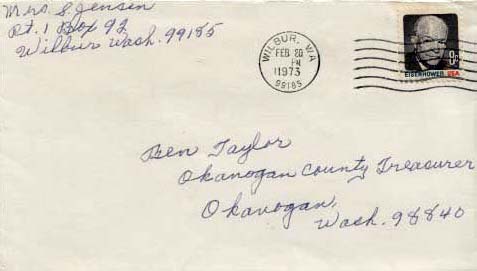 Mrs S. Jensen
Rt. 1 Box 92
Wilbur Wash. 99185
WILBUR, WA
FEB 20
PM
1973
99185
8¢
EISENHOWER USA
Ben Taylor
Okanogan County Treasurer
Okanogan,
Wash. 98840